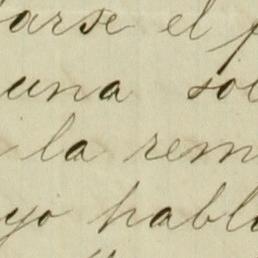 arse el p
una sol
la rem
yo habl